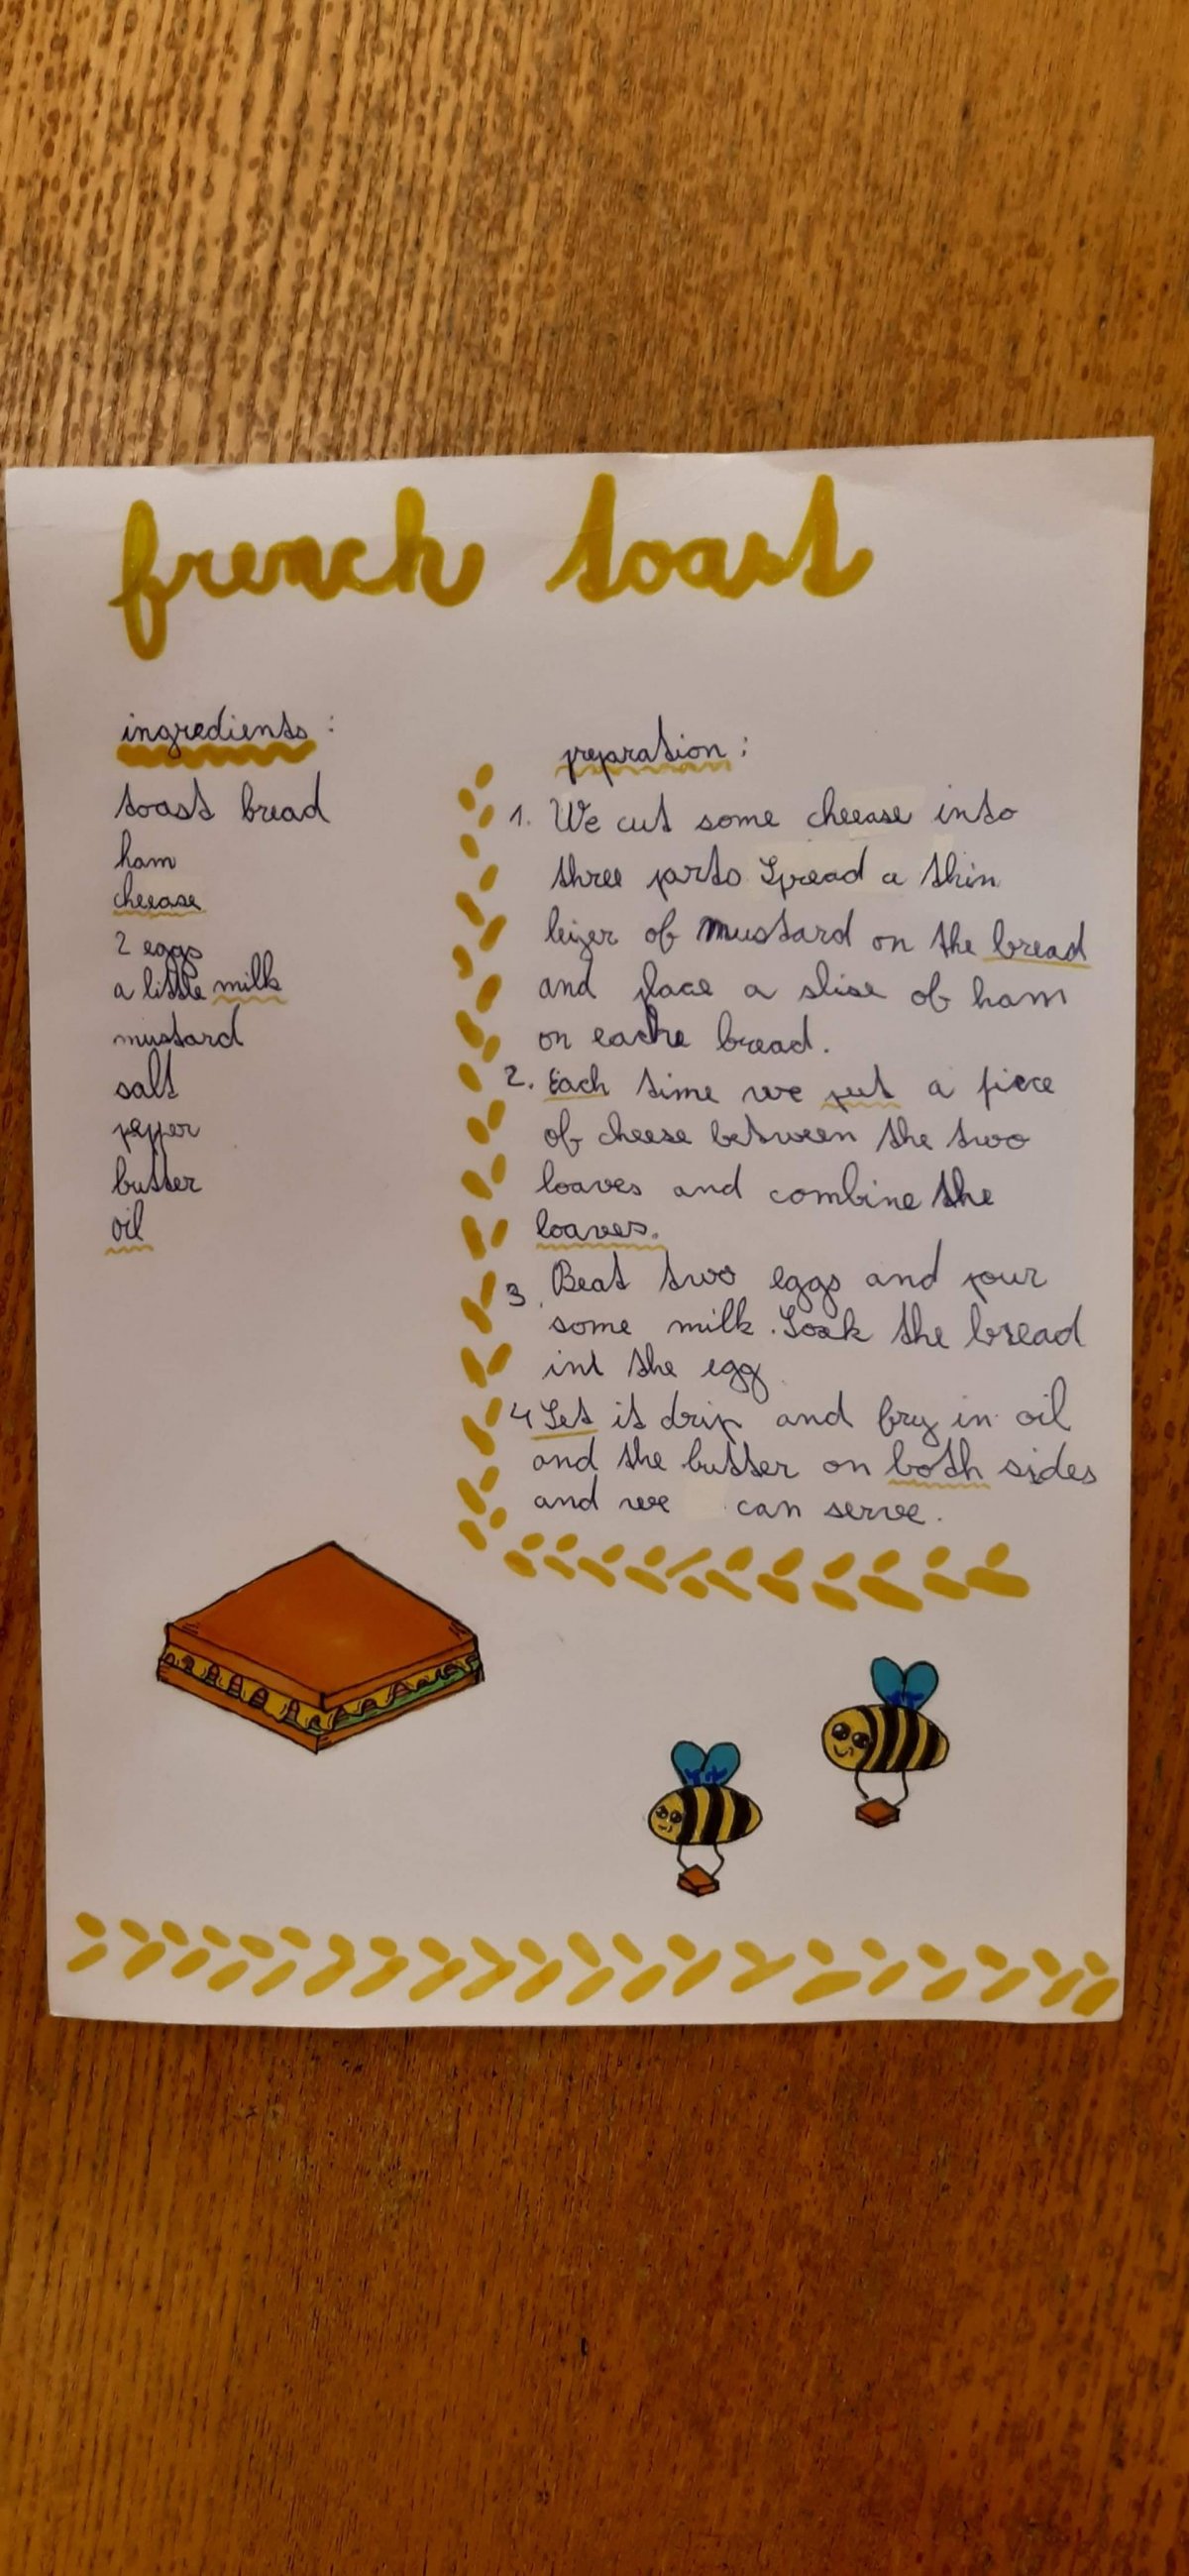 french toast
ingredients :
toast bread
ham
cheease
2 eggs
a little milk
mustard
salt
pepper
butter
oil
preparation :
1. We cut some cheease into
three parts Spread a thin
leizer of mustard on the bread
and place a slise of ham
on eache bread.
2. Each time we put a piece
of cheese between the two
loaves and combine the
loaves.
3. Beat two eggs and pour
some milk. Soak the bread
int the egg
4 Let it drip and fry in oil
and the butter on both sides
and we can serve.